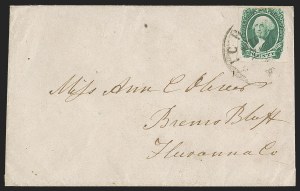 Miss Ann C Oliver
Bremo Bluff
Fluvanna Co